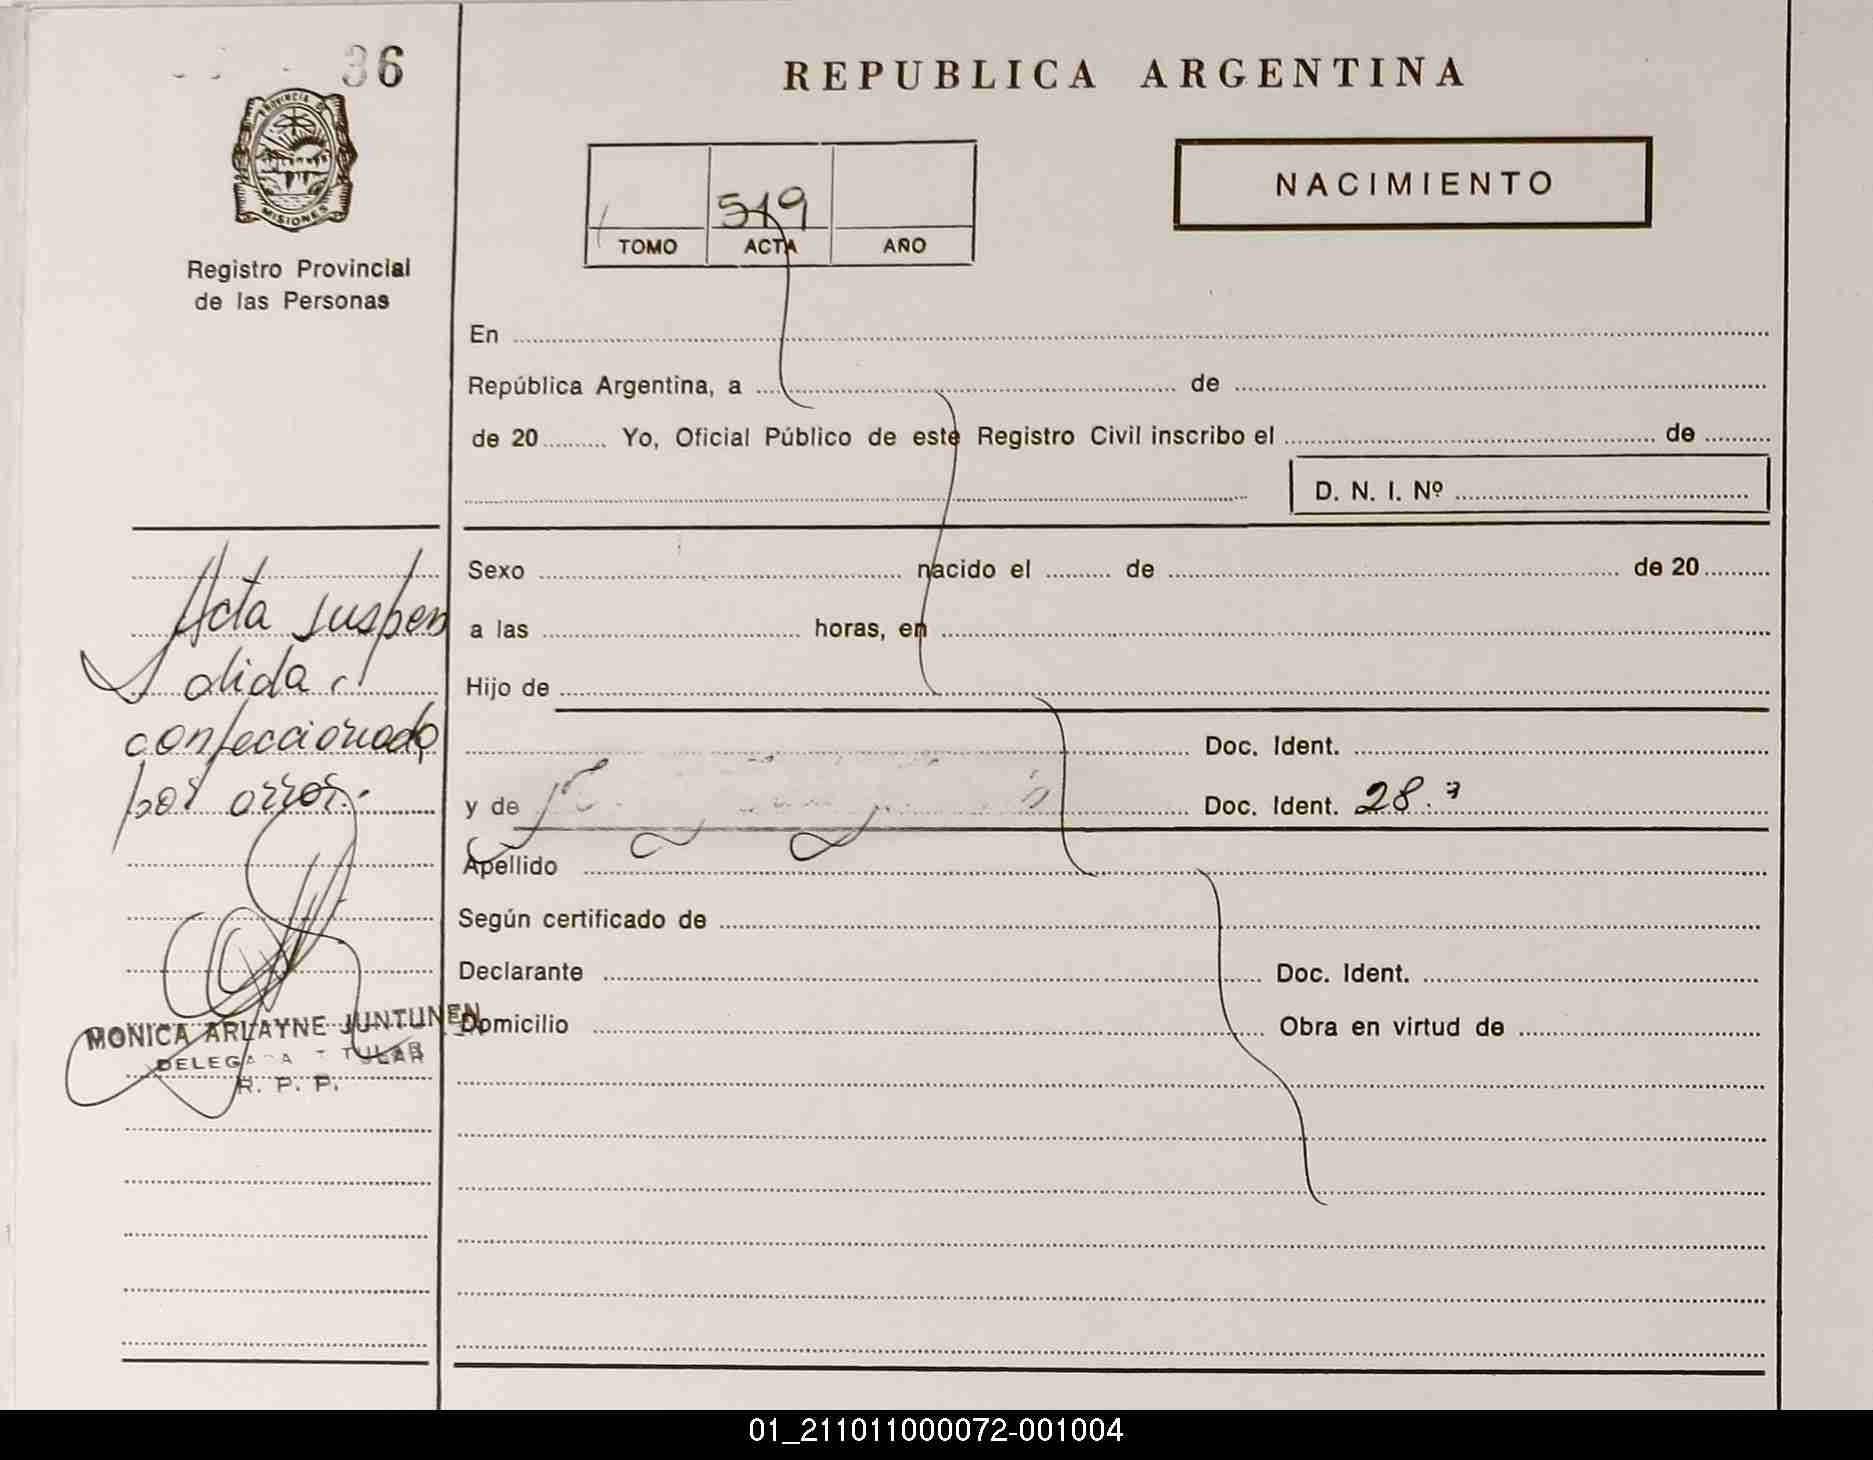 36
PROVINCIA DE
MISIONES
Registro Provincial
de las Personas
REPUBLICA ARGENTINA
519
TOMO ACTA AÑO
NACIMIENTO
En
República Argentina, a de
de 20 Yo, Oficial Público de este Registro Civil inscribo el de
D. N. I. Nº
Sexo nacido el de de 20
a las horas, en
Hijo de
Doc. Ident.
y de Doc. Ident. 28.
Apellido
Según certificado de
Declarante Doc. Ident.
Domicilio Obra en virtud de
Acta suspen
dida
confeccionado
por error.
MONICA ARLAYNE JUNTUNEN
DELEGADA TITULAR
R. P. P.
01_211011000072-001004